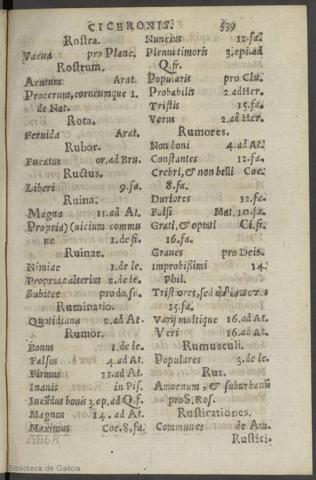 CICERONIS. 539
Rostra.
Vacua pro Planc.
Rostrum.
Acutum Arat.
Procerum, corneumque 1.
de Nat.
Rota.
Feruida Arat.
Rubor.
Fucatus or. ad Bru.
Ructus.
Liberi 9. fa.
Ruina.
Magna 11. ad At.
Propria) (uicium commu
ne 1. de fi.
Ruinae.
Nimiae 1. de le.
Propriae alterius 2. de le.
Subitae pro do. su.
Ruminatio.
Quotidiana 2. ad At.
Rumor.
Bonus 1. de le.
Falsus 4. ad At.
Firmus 12. ad At.
Inanis in Pis.
Incendus bonis 3. ep. ad Q. f.
Magnus 14. ad At.
Maximus Coe. 8. fa.
Nuncius 12. fa.
Plenus timoris 3. ep. ad
Q. fr.
Popularis pro Clu.
Probabilis 2. ad Her.
Tristis 15. fa.
Verus 2. ad Her.
Rumores.
Non boni 4. ad At.
Constantes 12. fa.
Crebri, & non belli Coe.
8. fa.
Duriores 12. fa.
Falsi Mat. 10. fa.
Grati, & optati Ci. fi.
16. fa.
Graues pro Deio.
Improbissimi 14.
Phil.
Tristiores, sed
15. fa.
Varij multique 16. ad At.
Veri 16. ad At.
Rumusculi.
Populares 3. de le.
Rus.
Amoenum, & suburbanum
pro S. Ros.
Rusticationes.
Communes de Am.
Rustici-
Biblioteca de Galicia